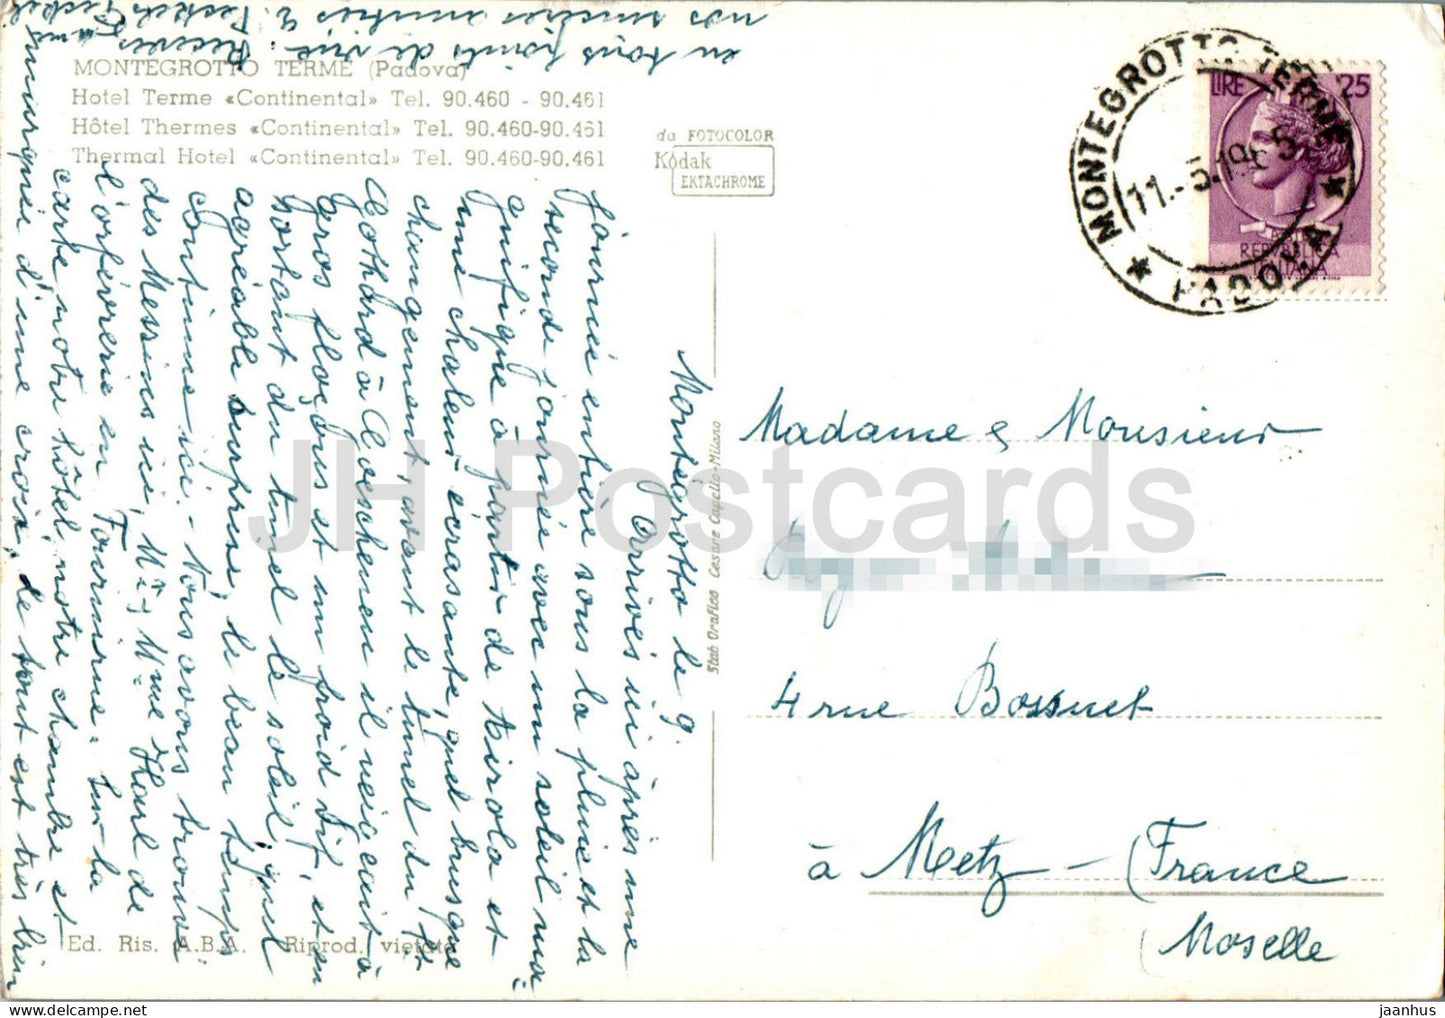 MONTEGROTTO TERME (Padova)
Hotel Terme «Continental» Tel. 90.460 - 90.461
Hôtel Thermes «Continental» Tel. 90.460-90.461
Thermal Hotel «Continental» Tel. 90.460-90.461
da FOTOCOLOR
Kodak
EKTACHROME
MONTEGROTTO TERME
11.-5.19
PADOVA
LIRE 25
REPUBBLICA
ITALIANA
Montégrotto le 9.
Arrivés ici après une
journée entière sous la pluie et la
seconde journée avec un soleil ma-
gnifique à partir de Airolo et
une chaleur écrasante, quel brusque
changement, avant le tunnel du St
Gothard à Goeschenen il neigeait à
gros flocons et un froid sif, et en
sortant du tunel le soleil, quel
agréable surprise, le beau temps
continue ici. - Nous avons trouvé
des Messins ici, Mr et Mme de
l'orfèvrerie en Fournirue. Sur la
carte notre hôtel, notre chambre est
marquée d'une croix, le tout est très bien
en tous points de vue. Recevez
nos sincères amitiés
Stab Grafico Cesare Capello-Milano
Madame & Monsieur
4 rue Bossuet
à Metz - (France
Moselle
Ed. Ris. A.B.A. Riprod. vietata
JH Postcards
jaanhus